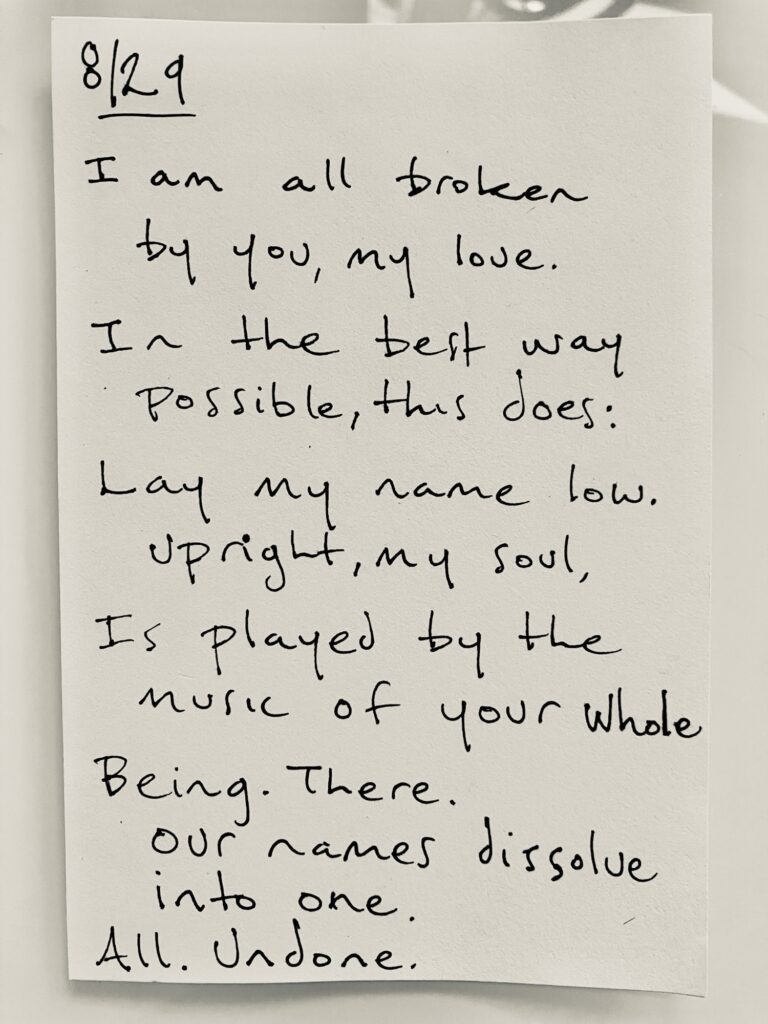 8/29
I am all broken
by you, my love.
In the best way
possible, this does:
Lay my name low.
Upright, my soul,
Is played by the
music of your whole
Being. There.
Our names dissolve
into one.
All. Undone.